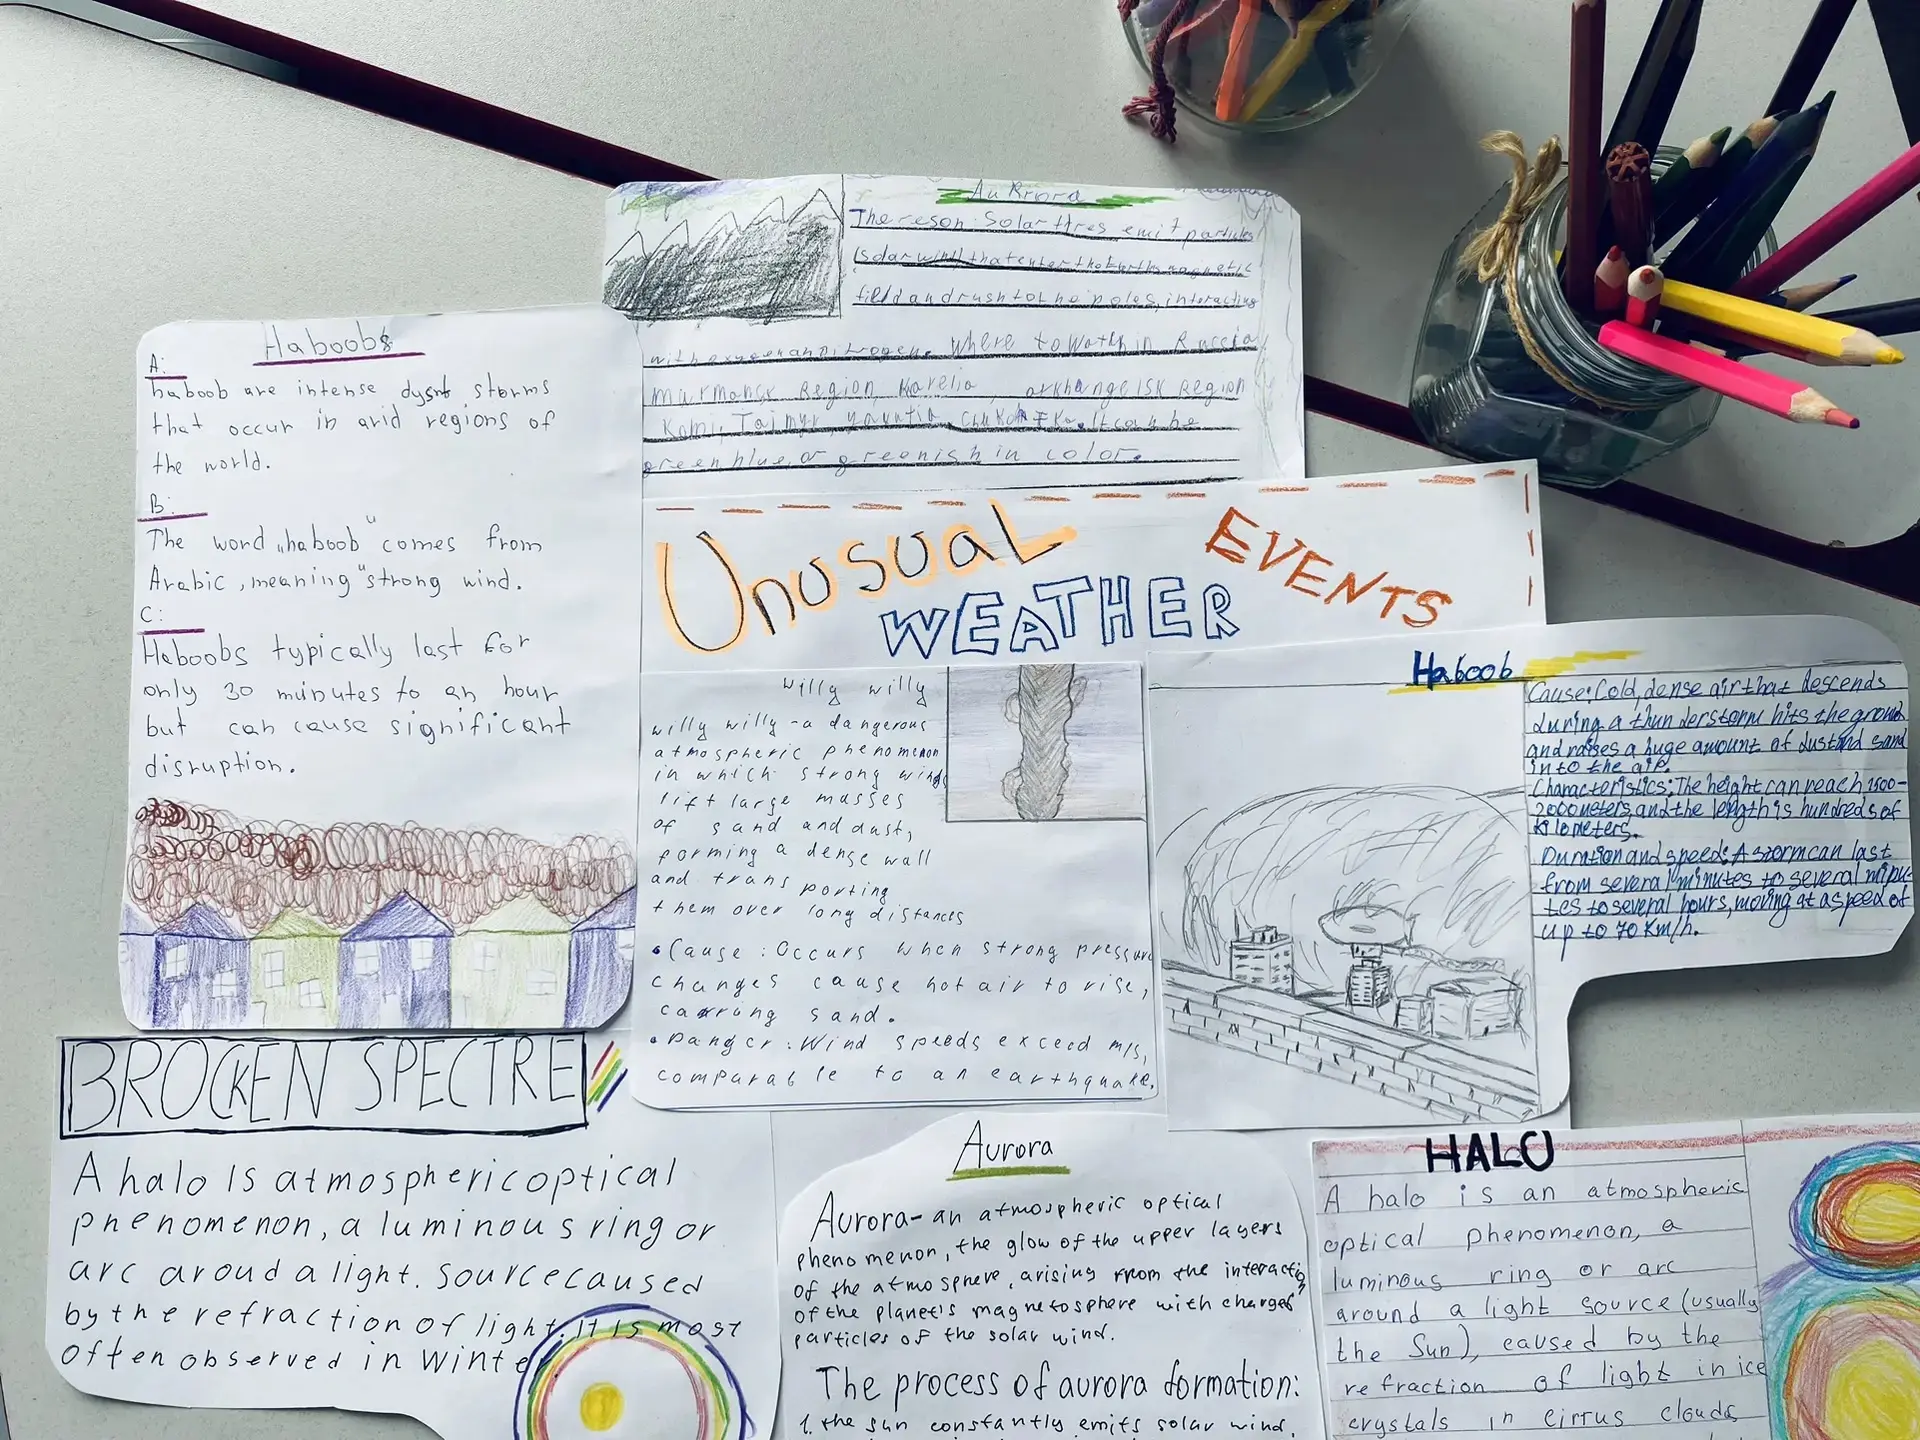 AuRrora
The reson: Solar fires emit particles
(solar wind) that enter the Earths magnetic
field and rush to the poles, interacting
with oxygen and nitrogen. Where to watch in Russia
Murmansk Region, Karelia, arkhangelsk Region
Komi, Taimyr, It can be
green blue or greenish in color.
Haboobs
A:
haboob are intense dust storms
that occur in arid regions of
the world.
B:
The word „haboob" comes from
Arabic, meaning "strong wind.
C:
Haboobs typically last for
only 30 minutes to an hour
but can cause significant
disruption.
UnusuaL
WEATHER
EVENTS
willy willy
willy willy - a dangerous
atmospheric phenomenon
in which strong winds
lift large masses
of sand and dust,
forming a dense wall
and trans porting
them over long distances
• Cause: Occurs when strong pressure
changes cause hot air to rise,
carrying sand.
• Danger: Wind speeds exceed m/s,
comparable to an earthquake.
Haboob
Cause: Cold, dense air that descends
during a thunderstorm hits the ground
and raises a huge amount of dust and sand
into the air.
Characteristics: The height can reach 1500-
2000 meters, and the length is hundreds of
kilometers.
Duration and speed: A storm can last
from several minutes to several minu-
tes to several hours, moving at a speed of
up to 70 km/h.
BROCKEN SPECTRE
A halo is atmospheric optical
phenomenon, a luminous ring or
arc aroud a light. source caused
by the refraction of light. It is most
often observed in Winter
Aurora
Aurora- an atmospheric optical
phenomenon, the glow of the upper layers
of the atmosphere, arising from the interactio
of the planet's magnetosphere with charged
particles of the solar wind.
The process of aurora formation:
1. the sun constantly emits solar wind.
HALO
A halo is an atmospheric
optical phenomenon, a
luminous ring or arc
around a light source (usually
the Sun), caused by the
refraction of light in ice
crystals in cirrus clouds